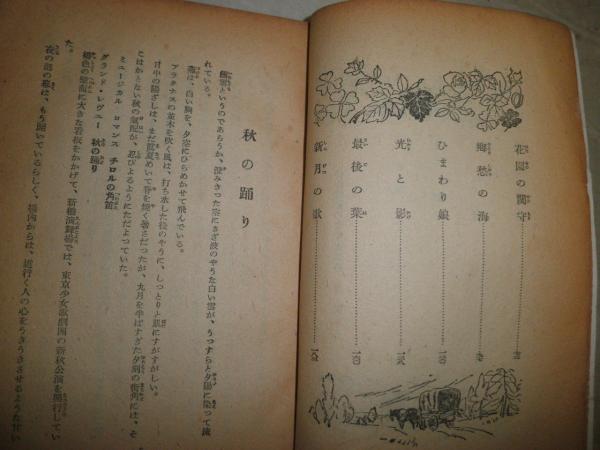 花園の関守
郷愁の海
ひまわり娘
光と影
最後の葉
新月の歌
秋の踊り
鰯雲というのであろうか、澄みきった空にさざ波のやうな白い雲が、うっすらと夕陽に染って流
れている。
燕は、白い胸を、夕空にひらめかせて飛んでいる。
プラタナスの並木を吹く風は、打ち水した後のやうに、しっとりと肌にすがすがしい。
日中の陽ざしは、まだ真夏めいて脊を焼く暑さだつたが、九月を半ばすぎた夕刻の街角には、そ
こはかとない秋の気配が、忍びよるようにただよつていた。
ミュージカル ロマンス チロルの角笛
グランド・レヴュー 秋の踊り
褐色の壁面に大きな看板をかかげて、新橋演舞場では、東京少女歌劇団の新秋公演を開行してい
た。
夜の部の幕は、もう開いているらしく、場内からは、道行く人の心をうきうきさせるような甘い